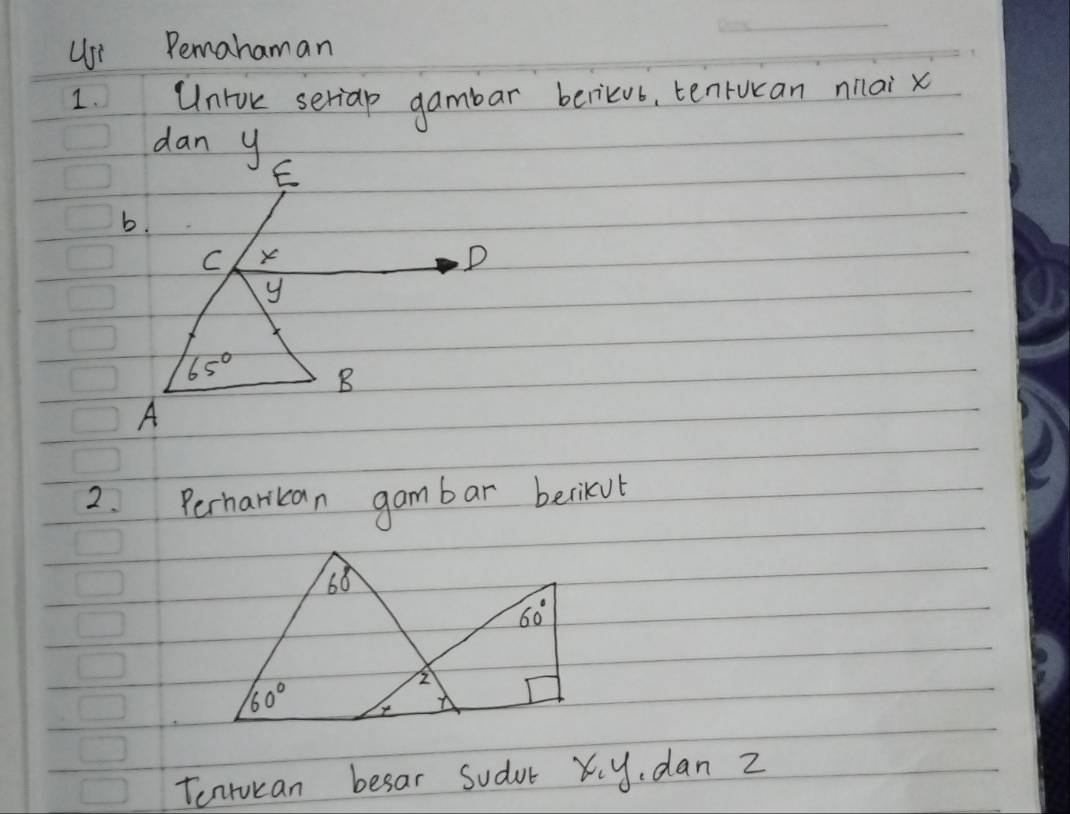 Uji Pemahaman
1. Untuk setiap gambar berikut, tentukan nilai x
dan y
E
b.
C x D
y
65°
B
A
2. Perhatikan gambar berikut
60
60°
60°
z
x y
Tentukan besar sudut x, y, dan z